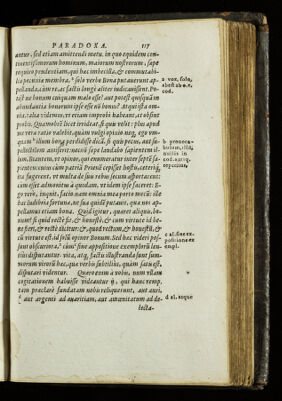 PARADOXA. 117
antur, sed etiam amittendi metu. in quo equidem con-
tinentissimorum hominum, maiorum nostrorum, sæpe
requiro prudentiam, qui hæc imbecilla, & commutabi-
lia pecuniæ membra, solo verbo bona putauerunt ap-
pellanda, cùm re, ac factis longè aliter iudicauissent. Po-
test ne bonum cuiquam malo esse? aut potest quisquã in
abundantia bonorum ipse esse nõ bonus? Atqui ista om-
nia talia videmus, vt etiam improbi habeant, & obsint
probis. Quamobrē licet irrideat, si quis volet: plus apud
me vera ratio valebit, quàm vulgi opinio neq, ego vn-
quam
bona perdidisse dicã, si quis pecus, aut su-
pellectilem amiserit. nec nõ sæpe laudabo sapientem il-
lum, Biantem, vt opinor, qui enumeratur inter septē sa-
pientes: cuius cùm patriã Prienē cepisset hostis, cæteriq,
ita fugerent, vt multa de suis rebus secum asportarent:
cùm esset admonitus à quodam, vt idem ipse faceret: E-
go verò, inquit, facio: nam omnia mea porto mecū. ille
hæc ludibria fortunæ, ne sua quidē putauit, quæ nos ap-
pellamus etiam bona. Quid igitur, quæret aliquis, bo-
num? si quid rectè fit, & honestè, & cum virtute, id be-
ne fieri, & rectè dicitur: &, quod rectum, & honestũ, &
cũ virtute est, id solũ opinor Bonum. Sed hæc videri pos-
sunt obscuriora, cùm sine appositione exemplorū len-
tius disputantur: vita, atq, factis illustranda sunt sum-
morum virorũ hæc, quæ verbis subtilius, quàm satis est,
disputari videntur. Quæro enim à vobis, num vllam
cogitationem habuisse videantur ij, qui hanc remp.
tam præclarè fundatam nobis reliquerunt, aut auri,
aut argenti ad auaritiam, aut amœnitatum ad de-
lecta-
a vox, solo,
abest ab o. c.
cod.
b
nullis in
cod. antiq.
c al. sine ex-
positione ex
empl.
d al. atque